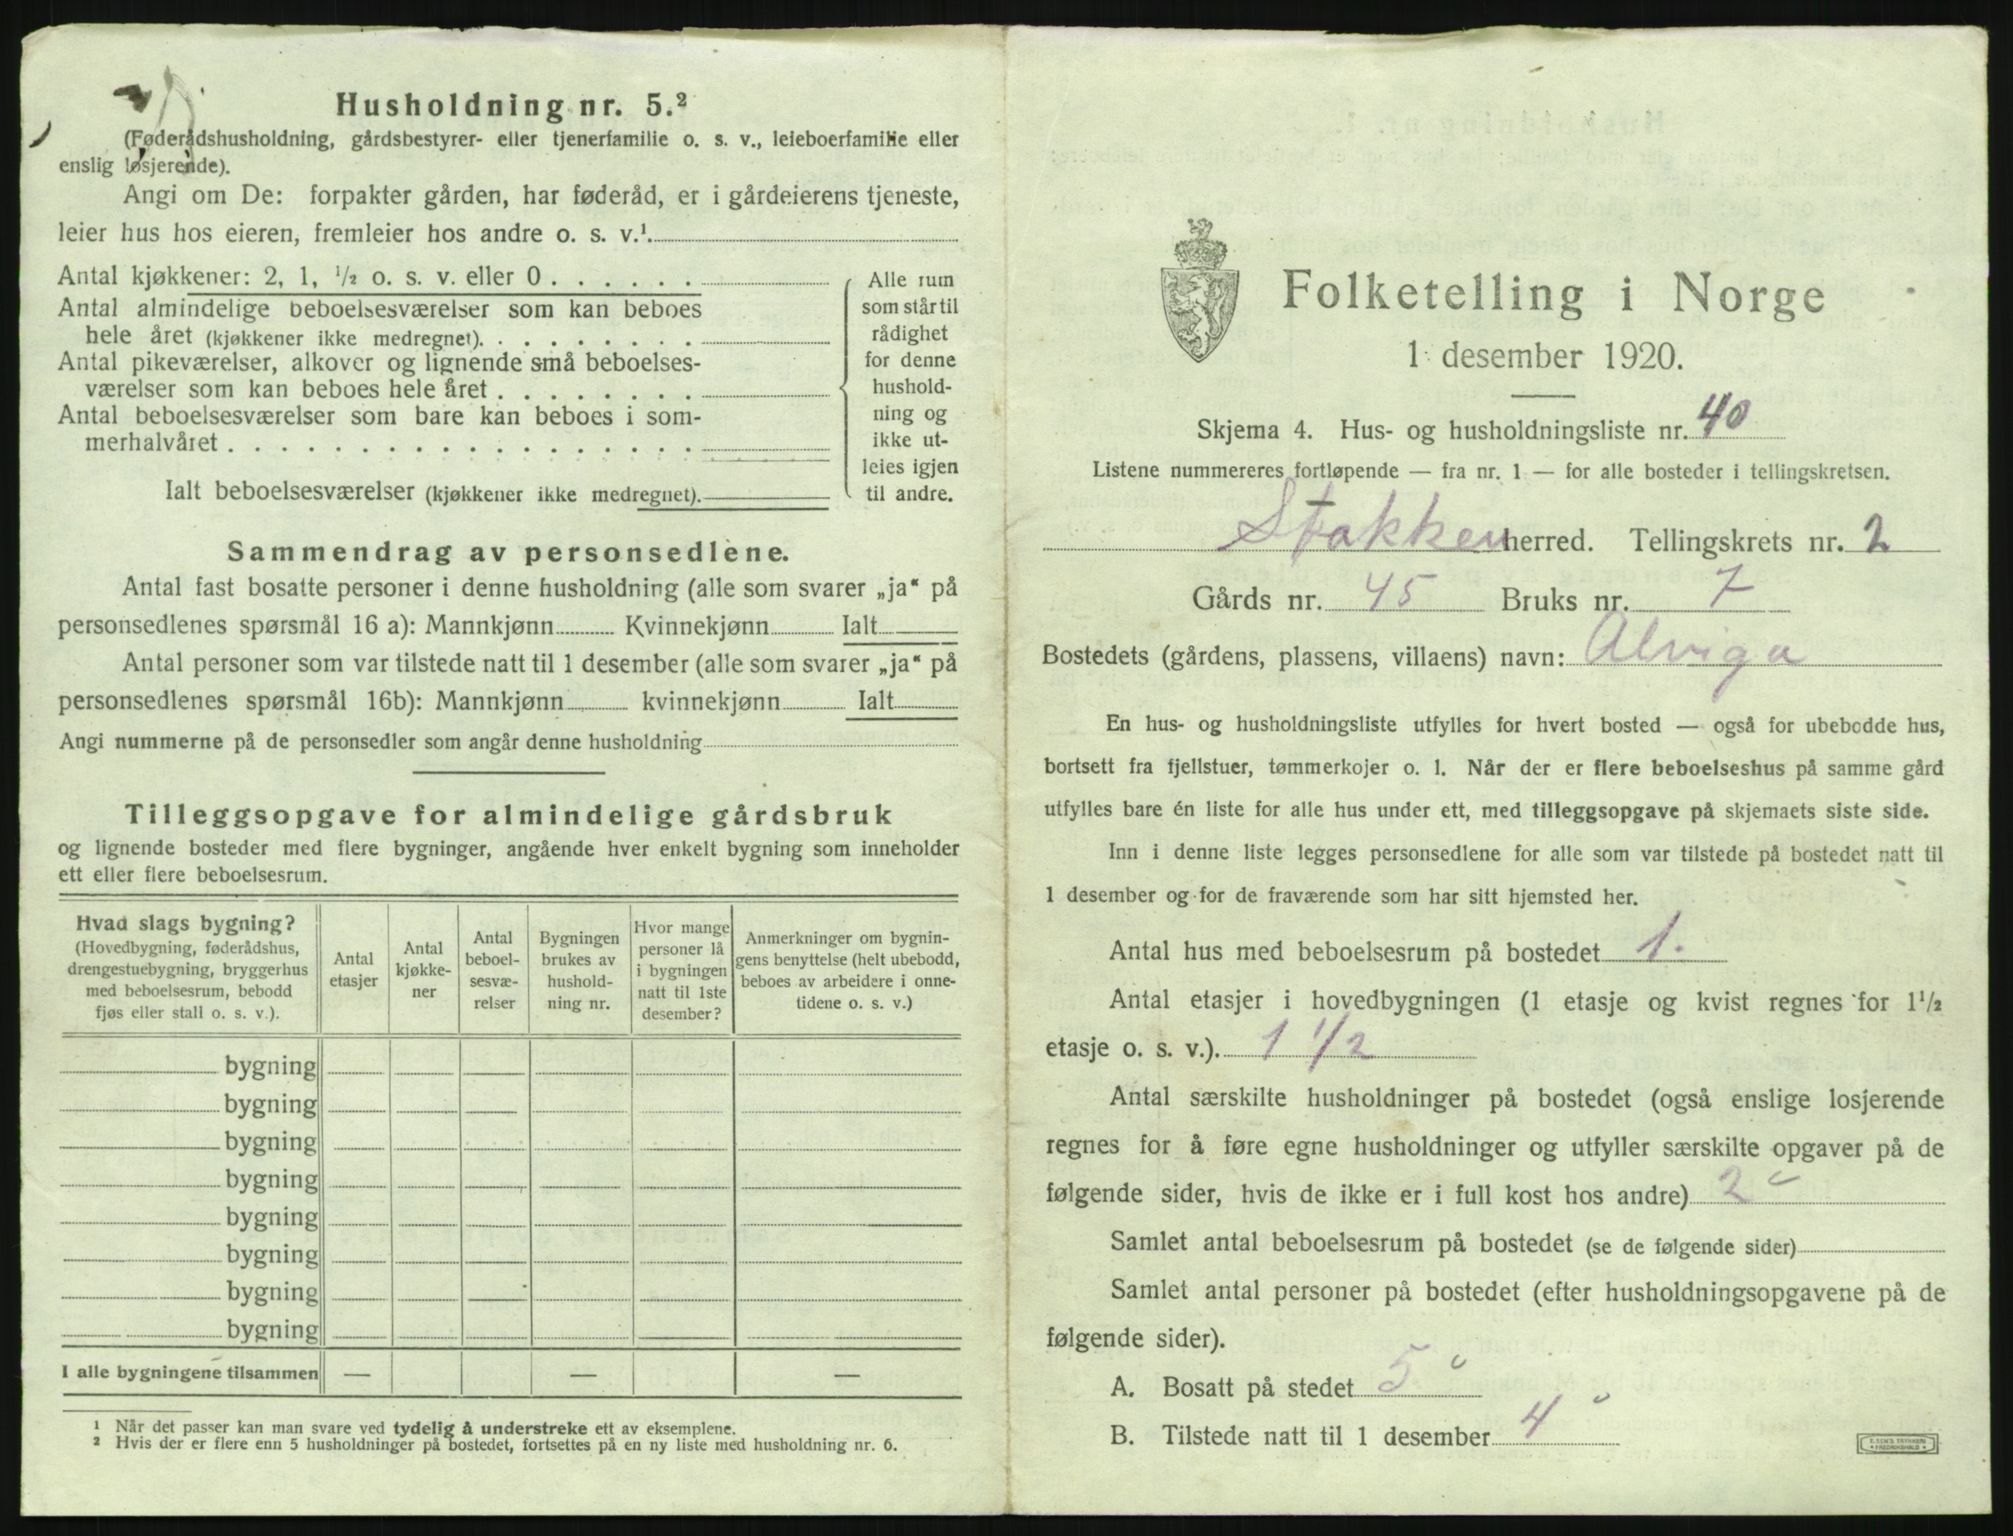 Husholdning nr. 5.²
(Føderådshusholdning, gårdsbestyrer- eller tjenerfamilie o. s. v., leieboerfamilie eller
enslig losjerende).
Angi om De: forpakter gården, har føderåd, er i gårdeierens tjeneste,
leier hus hos eieren, fremleier hos andre o. s. v.¹
Antal kjøkkener: 2, 1, ½ o. s. v. eller 0
Antal almindelige beboelsesværelser som kan beboes
hele året (kjøkkener ikke medregnet).
Antal pikeværelser, alkover og lignende små beboelses-
værelser som kan beboes hele året
Antal beboelsesværelser som bare kan beboes i som-
merhalvåret
Ialt beboelsesværelser (kjøkkener ikke medregnet).
Alle rum
som står til
rådighet
for denne
hushold-
ning og
ikke ut-
leies igjen
til andre.
Sammendrag av personsedlene.
Antal fast bosatte personer i denne husholdning (alle som svarer „ja“ på
personsedlenes spørsmål 16 a): Mannkjønn Kvinnekjønn Ialt
Antal personer som var tilstede natt til 1 desember (alle som svarer „ja“ på
personsedlenes spørsmål 16b): Mannkjønn kvinnekjønn Ialt
Angi nummerne på de personsedler som angår denne husholdning
Tilleggsopgave for almindelige gårdsbruk
og lignende bosteder med flere bygninger, angående hver enkelt bygning som inneholder
ett eller flere beboelsesrum.
Hvad slags bygning?
(Hovedbygning, føderådshus,
drengestuebygning, bryggerhus
med beboelsesrum, bebodd
fjøs eller stall o. s. v.).
Antal
etasjer
Antal
kjøkke-
ner
Antal
beboel-
sesvæ-
relser
Bygningen
brukes av
hushold-
ning nr.
Hvor mange
personer lå
i bygningen
natt til 1ste
desember?
Anmerkninger om bygnin-
gens benyttelse (helt ubebodd,
beboes av arbeidere i onne-
tidene o. s. v.)
bygning
bygning
bygning
bygning
bygning
bygning
bygning
bygning
I alle bygningene tilsammen — — —
¹ Når det passer kan man svare ved tydelig å understreke ett av eksemplene.
² Hvis der er flere enn 5 husholdninger på bostedet, fortsettes på en ny liste med husholdning nr. 6.
Folketelling i Norge
1 desember 1920.
Skjema 4. Hus- og husholdningsliste nr. 40
Listene nummereres fortløpende — fra nr. 1 — for alle bosteder i tellingskretsen.
Stokken herred. Tellingskrets nr. 2
Gårds nr. 45 Bruks nr. 7
Bostedets (gårdens, plassens, villaens) navn: Alviga
En hus- og husholdningsliste utfylles for hvert bosted — også for ubebodde hus,
bortsett fra fjellstuer, tømmerkojer o. l. Når der er flere beboelseshus på samme gård
utfylles bare én liste for alle hus under ett, med tilleggsopgave på skjemaets siste side.
Inn i denne liste legges personsedlene for alle som var tilstede på bostedet natt til
1 desember og for de fraværende som har sitt hjemsted her.
Antal hus med beboelsesrum på bostedet 1.
Antal etasjer i hovedbygningen (1 etasje og kvist regnes for 1½
etasje o. s. v.). 1 1/2
Antal særskilte husholdninger på bostedet (også enslige losjerende
regnes for å føre egne husholdninger og utfyller særskilte opgaver på de
følgende sider, hvis de ikke er i full kost hos andre) 2
Samlet antal beboelsesrum på bostedet (se de følgende sider)
Samlet antal personer på bostedet (efter husholdningsopgavene på de
følgende sider).
A. Bosatt på stedet 5
B. Tilstede natt til 1 desember 4